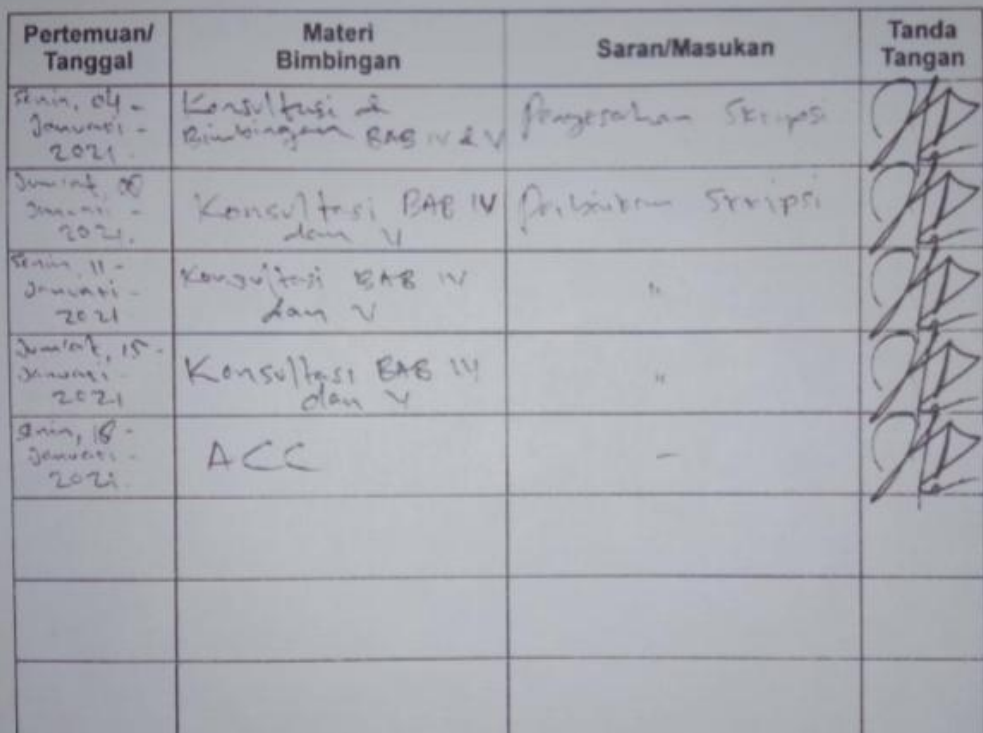 Pertemuan/ Tanggal
Materi Bimbingan
Saran/Masukan
Tanda Tangan
Senin, 04 -
Januari -
2021.
Konsultasi &
Bimbingan BAB IV & V
Skripsi
Jum'at, 08
Januari -
2021.
Konsultasi BAB IV
dan V
Skripsi
Senin, 11 -
Januari -
2021
Konsultasi BAB IV
dan V
"
Jum'at, 15 -
Januari -
2021
Konsultasi BAB IV
dan V
"
Senin, 18 -
Januari -
2021.
ACC
-